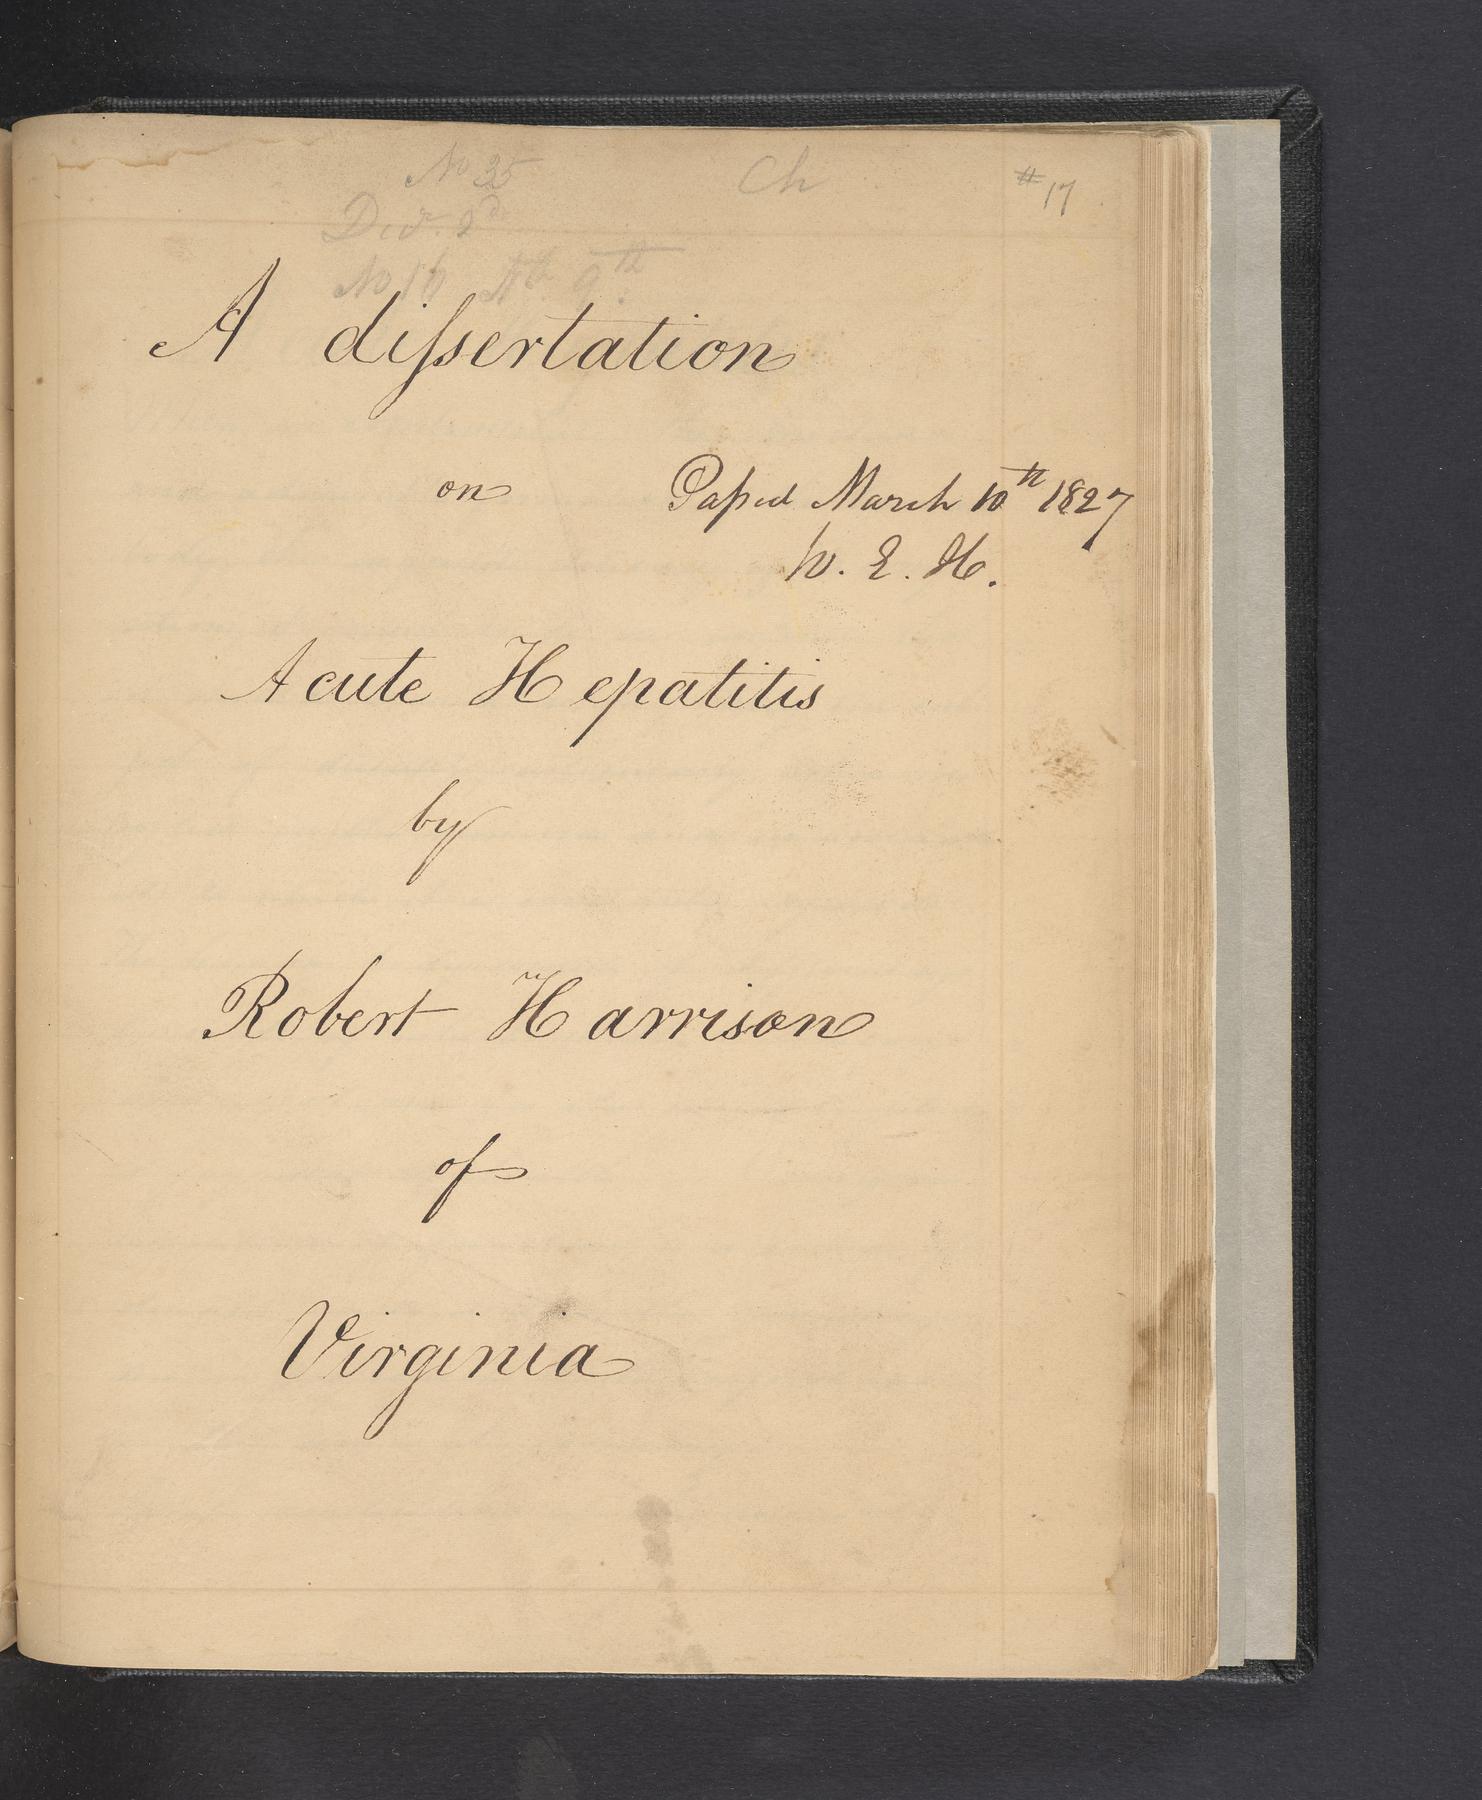 No 35
Ch
#17
Div. 2d
No 16 9th
A dissertation
on
Passed March 10th 1827
W. E. H.
Acute Hepatitis
by
Robert Harrison
of
Virginia